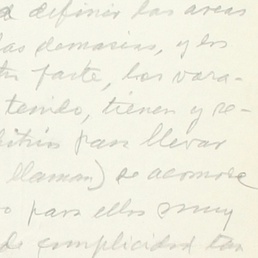 a definir las areas
las demasías, y los
parte, los vara-
tenido, tienen y re-
para llevar
llaman) se acomode
para ellos muy
de complicidad tan